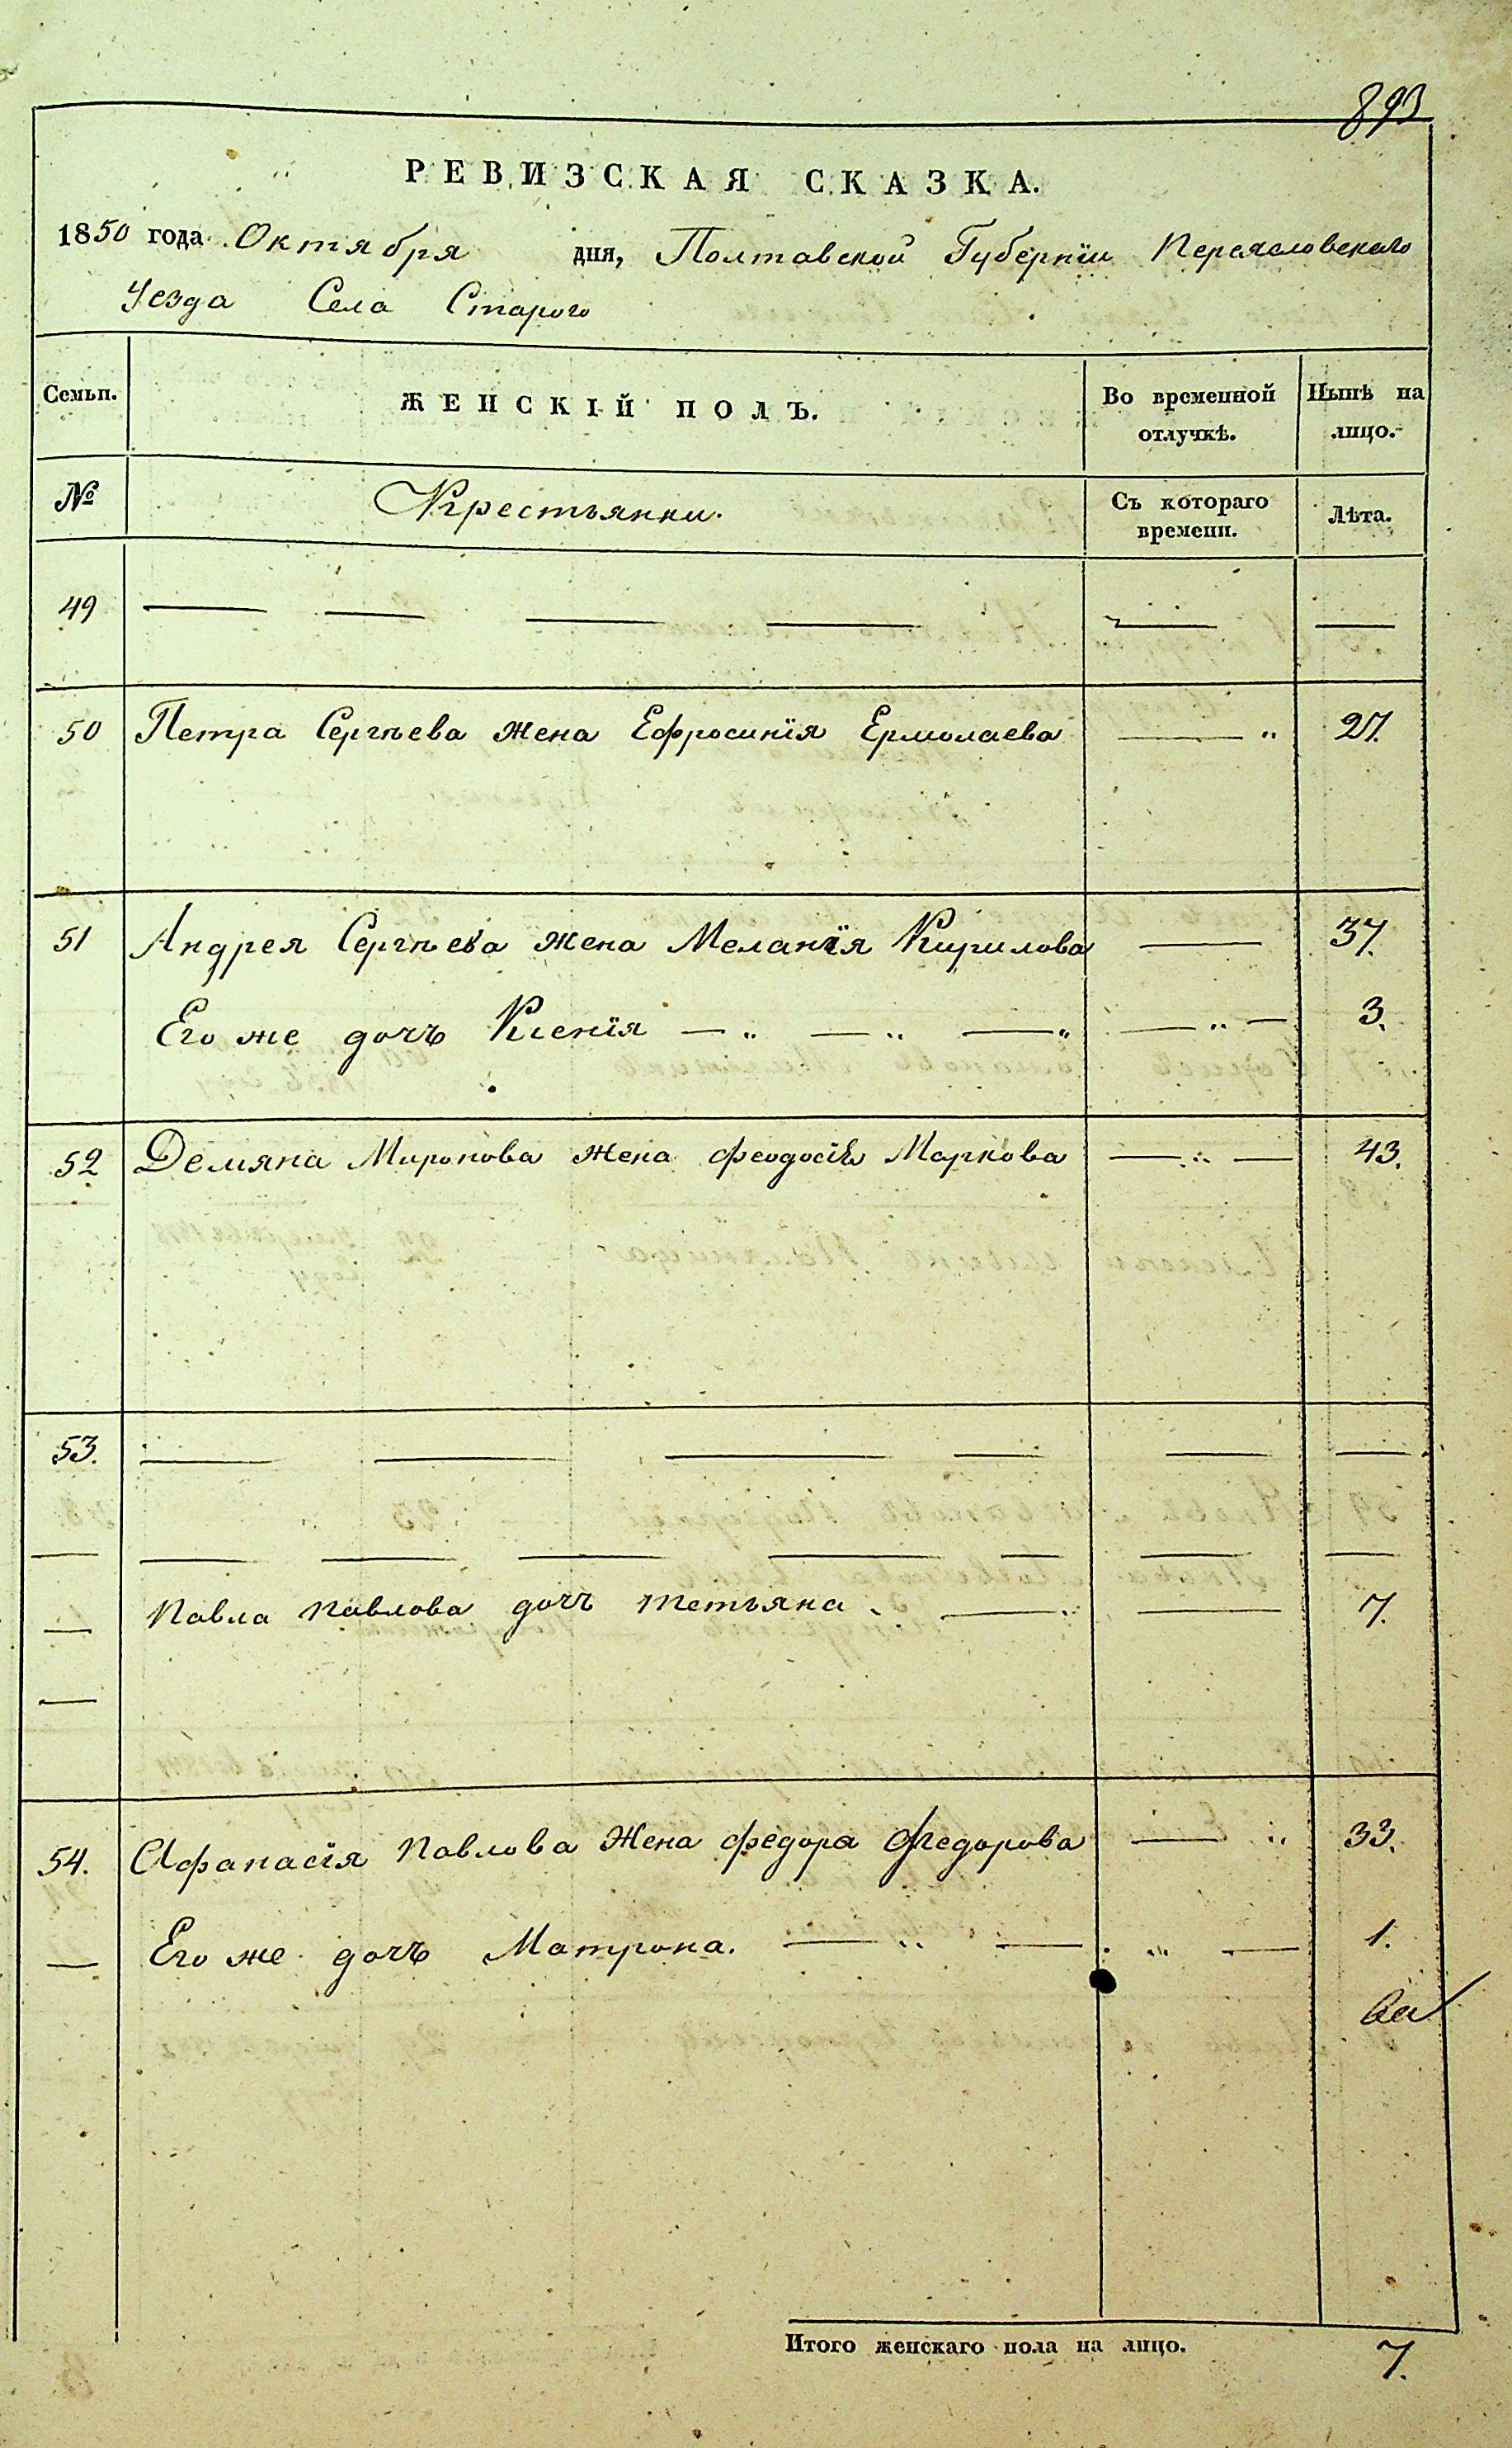 893
РЕВИЗСКАЯ СКАЗКА.
1850 года Октября дня, Полтавской Губернїи Переясловскаго
Уезда Села Старого
Семьи. ЖЕНСКІЙ ПОЛЪ. Во временной отлучкѣ. Нынѣ на лицо.
№ Крестьянки. Съ котораго времени. Лѣта.
49
50 Петра Сергѣева жена Ефросинїя Ермолаева 27.
51 Андрея Сергѣева жена Меланїя Кирилова 37.
Его же дочъ Ксенїя 3.
52 Демяна Миронова жена феодосїя Маркова 43.
53.
Павла Павлова дочъ тетьяна 7.
54. Афанасїя Павлова жена федора Федорова 33.
Его же дочъ Матрона. 1.
Итого женскаго пола на лицо. 7.